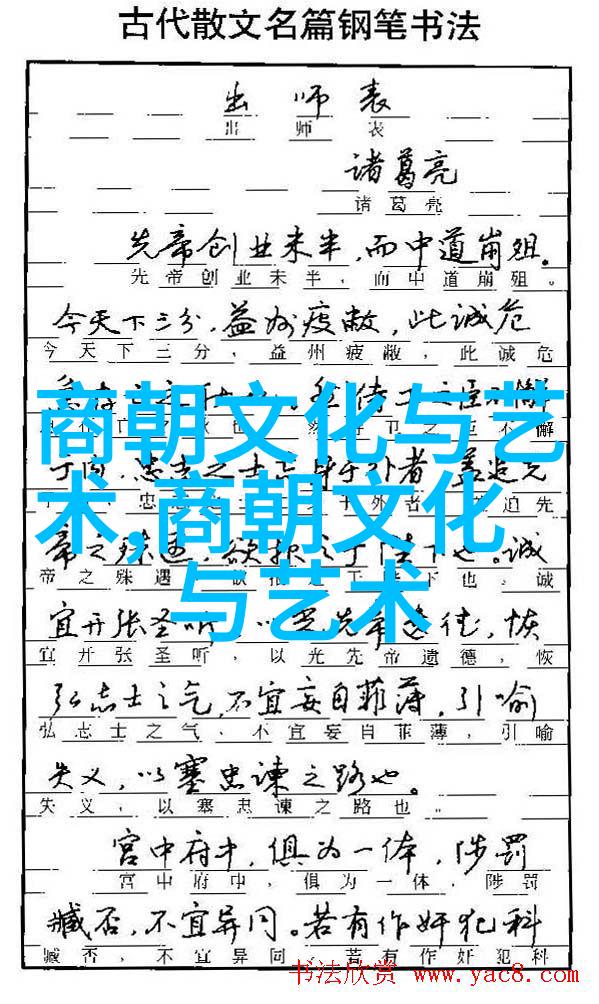 古代散文名篇钢笔书法
出师表
出师表
诸葛亮
诸葛亮
先帝创业未半，而中道崩殂。
先帝创业未半，而中道崩殂。
今天下三分，益州疲敝，此诚危
今天下三分，益州疲敝，此诚危
商朝文化与艺
术,商朝文化
与艺术
之臣不懈
懈
忠志之士忘身于外者，盖追先
外者 追先
帝之殊遇，欲报之于陛下也。诚
帝之殊遇 下也，诚
宜开张圣听，以光先帝遗德，恢
宜开张圣听，以光先帝遗德，恢
弘志士之气，不宜妄自菲薄，引喻
弘志士之气、不宜妄自菲薄，引喻
失义，以塞忠谏之路也。
失义，以塞忠谏之路也。
宫中府中，俱为一体，陟罚
宫中府中，俱为一体，陟罚
臧否，不宜异同。若有作奸犯科
臧否，不宜异同 若有作奸犯科
书法欣赏 www.yac8.com